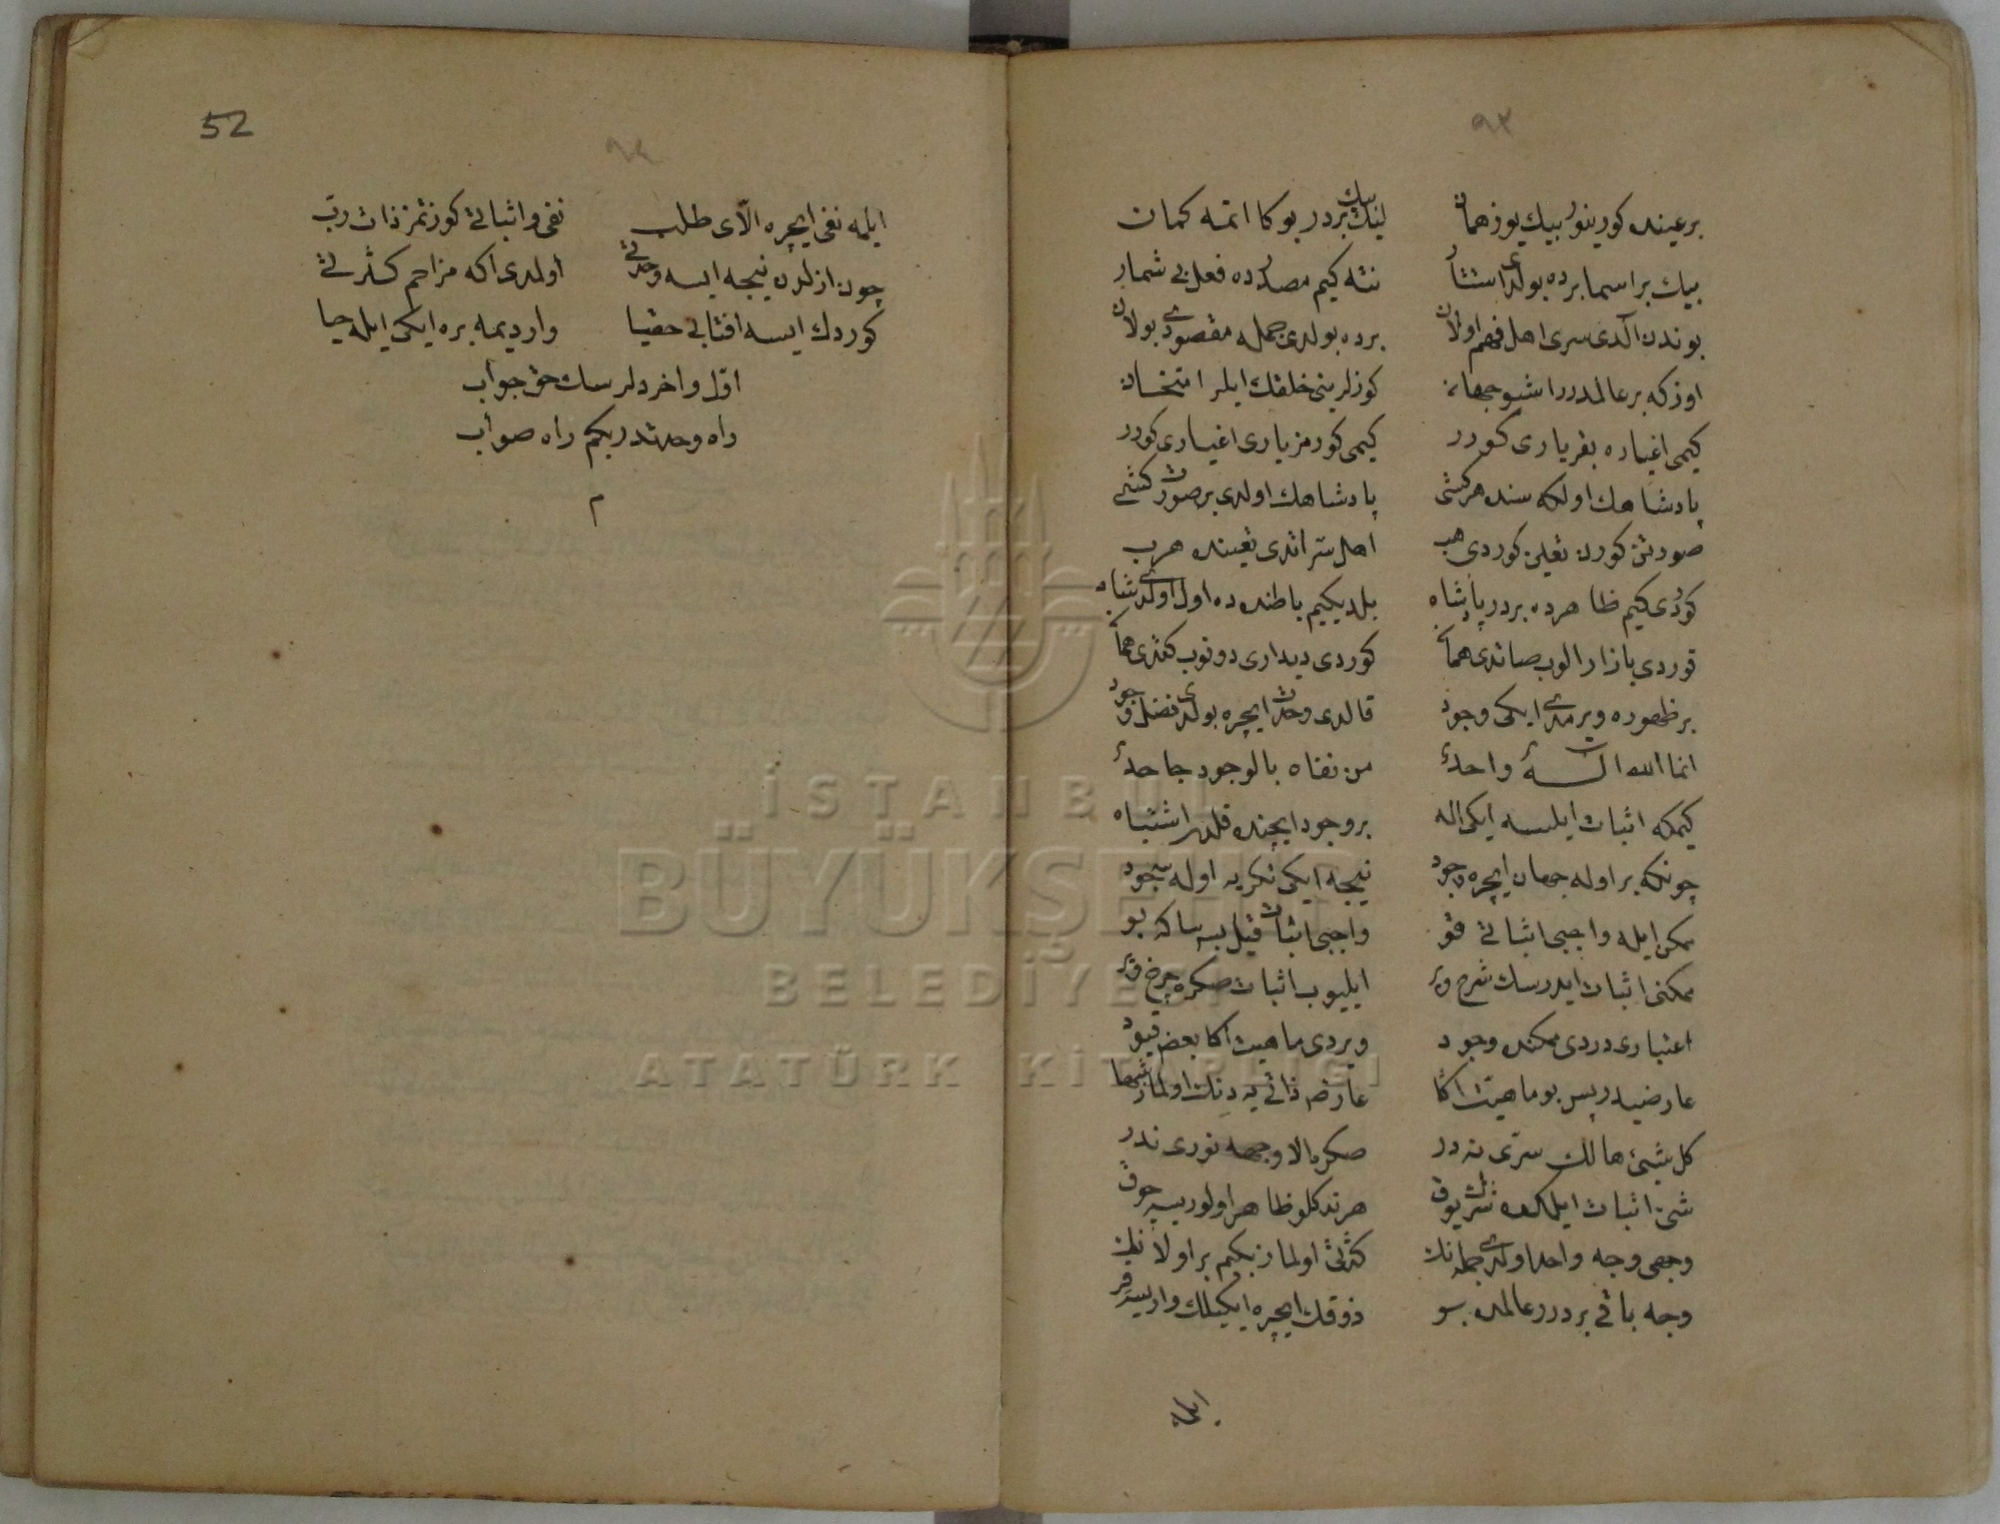 ٩٣
بر عینده كورینور بیك یوز همان لیك بیك بردر بوكا اتمه كمان
بیك بر اسما برده بولدی استتار نته كیم مصدرده فعل بی شمار
بوندن آلدی سری اهل فهم اولان برده بولدی جمله مقصودی بولان
اوزكه بر عالمدرر اشبو جهان كوزلرینی خلقك ایلر امتحان
كیمی اغیاره بقر یاری كورر كیمی كورمز یاری اغیاری كورر
پادشاهك اولكه سنده هر كشی پادشاهك اولدی بر صورت كشی
صورتن كورن تعین كوردی هب اهل سر اتدی تعینده هرب
كوردی كیم ظاهرده بردر پادشاه بلدیكیم باطنده ده اول اولدی شاه
قوردی بازار الوب صاتدی هما كوردی دیداری دونوب كتدی هما
بر ظهوره ویرمدی ایكی وجود قالدی وحدت ایچره بولدی فضل وجود
انما الله اله واحد من نفاه بالوجود جاحد
كیمكه اثبات ایلسه ایكی اله بر وجود ایچنده قلدی اشتباه
چونكه بر اوله جهان ایچره وجود نیجه ایكی تكریه اوله سجود
ممكن ایله واجبی اثباتی قو واجبی اثبات قیل بسه ساكه بو
ممكنی اثبات ایدرسك شرح ویر ایلیوب اثبات صكره چرخ ویر
اعتباری دردی ممكنده وجود ویردی ماهیت اكا بعض قیود
عارضیدر پس بو ماهیت اكا عارض ذاتی یه دنك اولماز شها
كل شیئ هالك سری نه در صكره الا وجهه نوری ندر
شئ اثبات ایلمكده شرك یوق هر نه دكلو ظاهر اولورسه چوق
وجهی وجه واحد اولدی جمله نك كثرتی اولماز بكیم بر اولا نك
وجه باقی بردرر عالمده بو ذوقك ایچره ایكیلك واریسه قو
ایله
52
٩٤
ایلمه نفی ایچره الای طلب نفی و اثباتی كوزتمز ذات رب
چون ازلدن نیجه ایسه وحدتی اولمدی اكه مزاحم كثرتی
كوردك ایسه افتابی حقیا وار دیمه بره ایكی ایله حیا
اول و اخر دلرسك حق جواب
راه وحدتدر بكم راه صواب
م
İSTANBUL
BÜYÜKŞEHİR
BELEDİYESİ
ATATÜRK KİTAPLIĞI